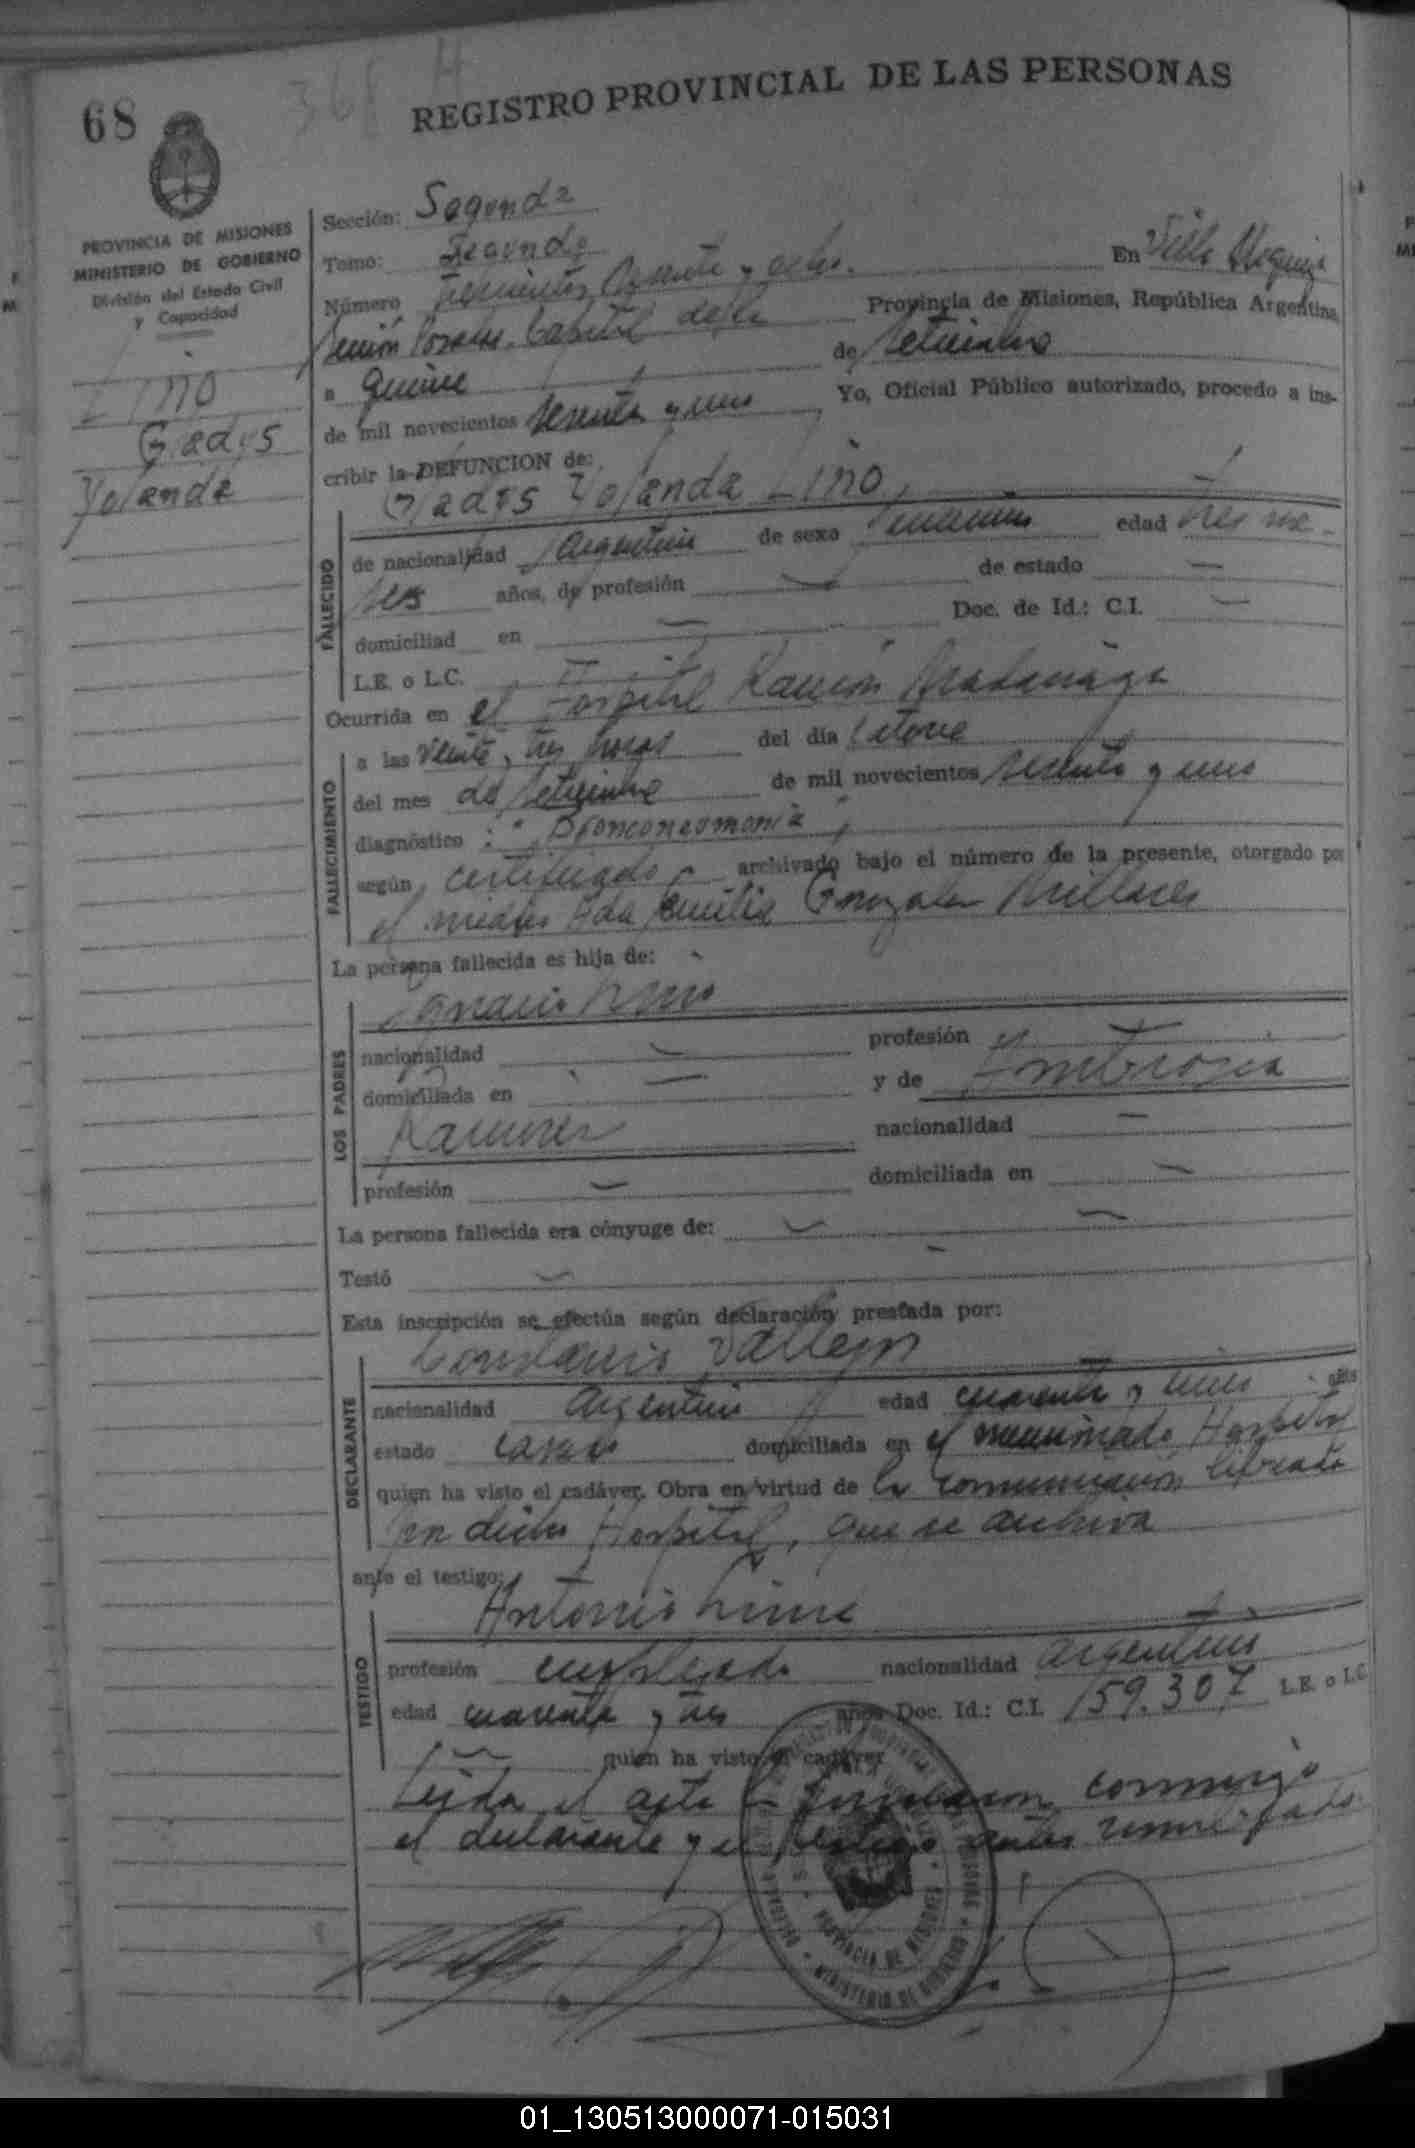 368 H
REGISTRO PROVINCIAL DE LAS PERSONAS
68
PROVINCIA DE MISIONES
MINISTERIO DE GOBIERNO
División del Estado Civil
y Capacidad
Liño
Gladys
Yolanda
Sección: Segunda
Tomo: Segundo
Número Trescientos Sesenta y ocho. En Villa Urquiza
Posadas, Capital de la Provincia de Misiones, República Argentina,
a Quince de Setiembre
de mil novecientos sesenta y uno Yo, Oficial Público autorizado, procedo a ins-
cribir la DEFUNCION de:
Gladys Yolanda Liño
FALLECIDO
de nacionalidad Argentina de sexo femenino edad tres me-
ses años, de profesión — de estado —
domiciliad en — Doc. de Id.: C.I. —
L.E. o L.C. —
Ocurrida en el Hospital Ramón Madariaga
FALLECIMIENTO
a las veinte y tres horas del día catorce
del mes de Setiembre de mil novecientos sesenta y uno
diagnóstico : "Bronconeumonia"
según certificado archivado bajo el número de la presente, otorgado por
el médico Ada Emilia Gonzalez Millares
La persona fallecida es hija de:
LOS PADRES
Ignacio Liño
nacionalidad — profesión —
domiciliada en — y de Ambrosia
Ramirez nacionalidad —
profesión — domiciliada en —
La persona fallecida era cónyuge de: — —
Testó — —
Esta inscripción se efectúa según declaración prestada por:
DECLARANTE
Constancio Vallejos
nacionalidad Argentino edad cuarenta y años
estado casado domiciliada en el mencionado Hospital
quien ha visto el cadáver. Obra en virtud de la comunicación librada
en dicho Hospital, que se archiva
ante el testigo:
TESTIGO
Antonio
profesión empleado nacionalidad argentino
edad cuarenta y tres años Doc. Id.: C.I. 159.307 L.E. o L.C.
— quien ha visto el cadáver
Leida el acta la firmaron conmigo
el declarante y el testigo antes
PROVINCIA DE MISIONES
MINISTERIO DE GOBIERNO
01_130513000071-015031